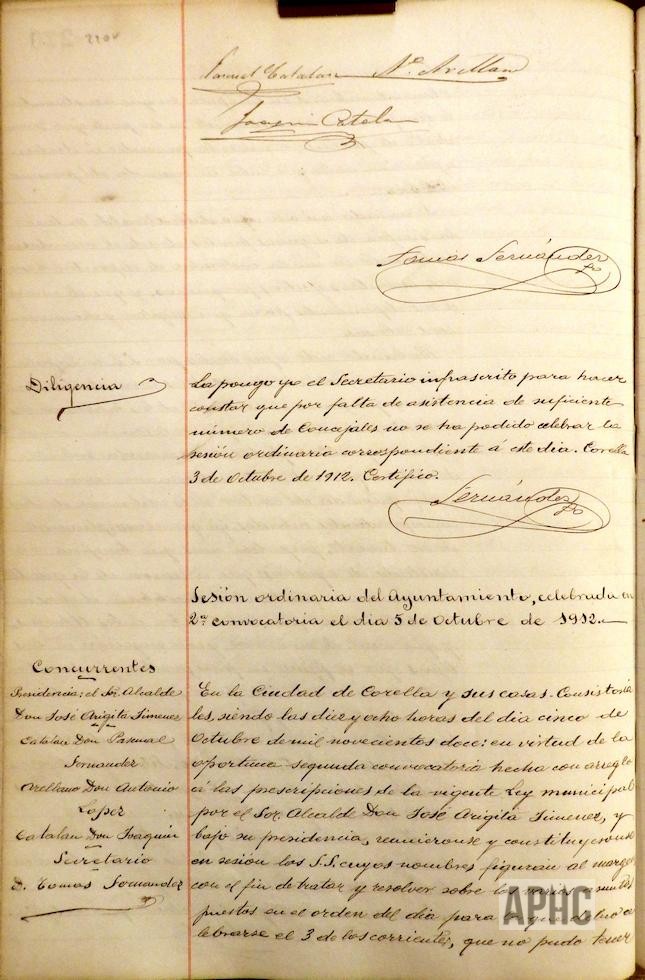 Pascual Catalan Ant.º Arellano
Joaquin Catalan
Tomás Fernández
Srio
Diligencia
La pongo yo el Secretario infrascrito para hacer
constar que por falta de asistencia de suficiente
número de Concejales no se ha podido celebrar la
sesión ordinaria correspondiente á este dia. Corella
3 de Octubre de 1912. Certifico.
Fernández
Srio
Sesión ordinaria del Ayuntamiento, celebrada en
2ª convocatoria el dia 5 de Octubre de 1912.
Concurrentes
Presidencia: el Sor. Alcalde
Don José Arigita Jimenez
Catalan Don Pascual
Fernandez
Arellano Don Antonio
Lopez
Catalan Don Joaquin
Secretario
D. Tomas Fernandez
En la Ciudad de Corella y sus casas-Consistoria
les, siendo las diez y ocho horas del dia cinco de
Octubre de mil novecientos doce: en virtud de la
oportuna segunda convocatoria hecha con arreglo
á las prescripciones de la vigente Ley municipal
por el Sor. Alcalde Don José Arigita Jimenez, y
bajo su presidencia, reunieronse y constituyeronse
en sesión los S.S. cuyos nombres figuran al margen
con el fin de tratar y resolver sobre los varios asuntos
puestos en el orden del dia para la que debió ce
lebrarse el 3 de los corrientes, que no pudo tener
APHC